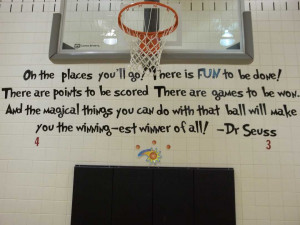 Oh the places you'll go! There is FUN to be done!
There are points to be scored There are games to be won.
And the magical things you can do with that ball will make
you the winning-est winner of all! -Dr Seuss
4
3